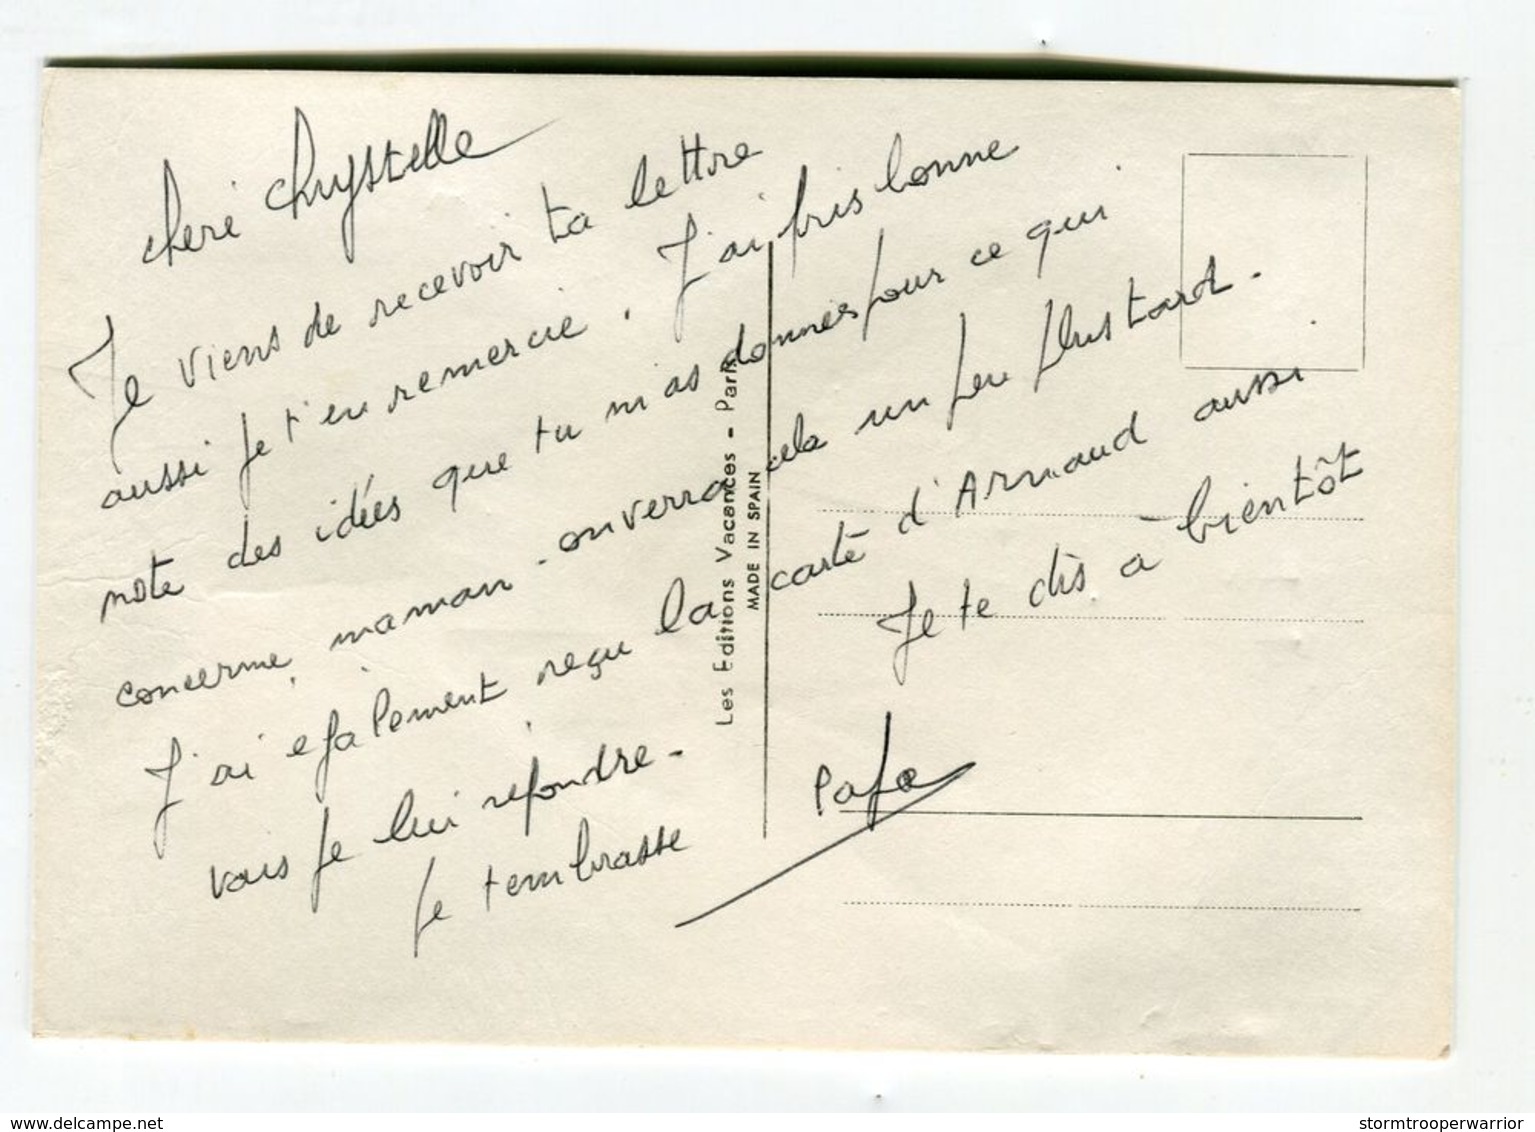 cheri chrystelle
Je viens de recevoir ta lettre
aussi je t'en remercie. J'ai pris bonne
note des idées que tu m'as données pour ce qui
concerne maman - on verra cela un peu plus tard -
J'ai également reçu la carte d'Arnaud aussi
vais je lui répondre - Je te dis à bientôt
Je t'embrasse
Papa
Les Editions Vacances - Paris
MADE IN SPAIN
www.delcampe.net
stormtrooperwarrior